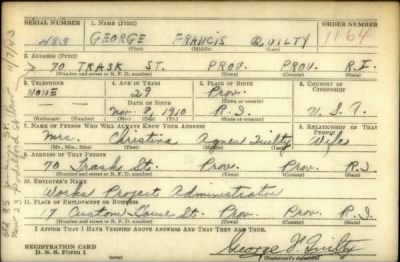 SERIAL NUMBER 1. NAME (Print) ORDER NUMBER
483 GEORGE FRANCIS QUILTY 1164
(First) (Middle) (Last)
2. ADDRESS (Print)
70 TRASK ST. PROV. PROV. R.I.
(Number and street or R. F. D. number) (Town) (County) (State)
3. TELEPHONE 4. AGE IN YEARS 5. PLACE OF BIRTH 6. COUNTRY OF CITIZENSHIP
NONE 29 Prov.
DATE OF BIRTH (Town or county)
Nov. 1910 R.I. U.S.A.
(Exchange) (No.) (Mo.) (Day) (Yr.) (State or country)
7. NAME OF PERSON WHO WILL ALWAYS KNOW YOUR ADDRESS 8. RELATIONSHIP OF THAT PERSON
Mrs. Christina Agnes Quilty Wife
(Mr., Mrs., Miss) (First) (Middle) (Last)
9. ADDRESS OF THAT PERSON
70 Trask St. Prov. Prov. R.I.
(Number and street or R. F. D. number) (Town) (County) (State)
10. EMPLOYER'S NAME
Works Project Administration
11. PLACE OF EMPLOYMENT OR BUSINESS
17 Custom House St. Prov. Prov. R.I.
(Number and street or R. F. D. number) (Town) (County) (State)
I AFFIRM THAT I HAVE VERIFIED ABOVE ANSWERS AND THAT THEY ARE TRUE.
REGISTRATION CARD
D. S. S. Form 1
George F. Quilty
(Registrant's signature)